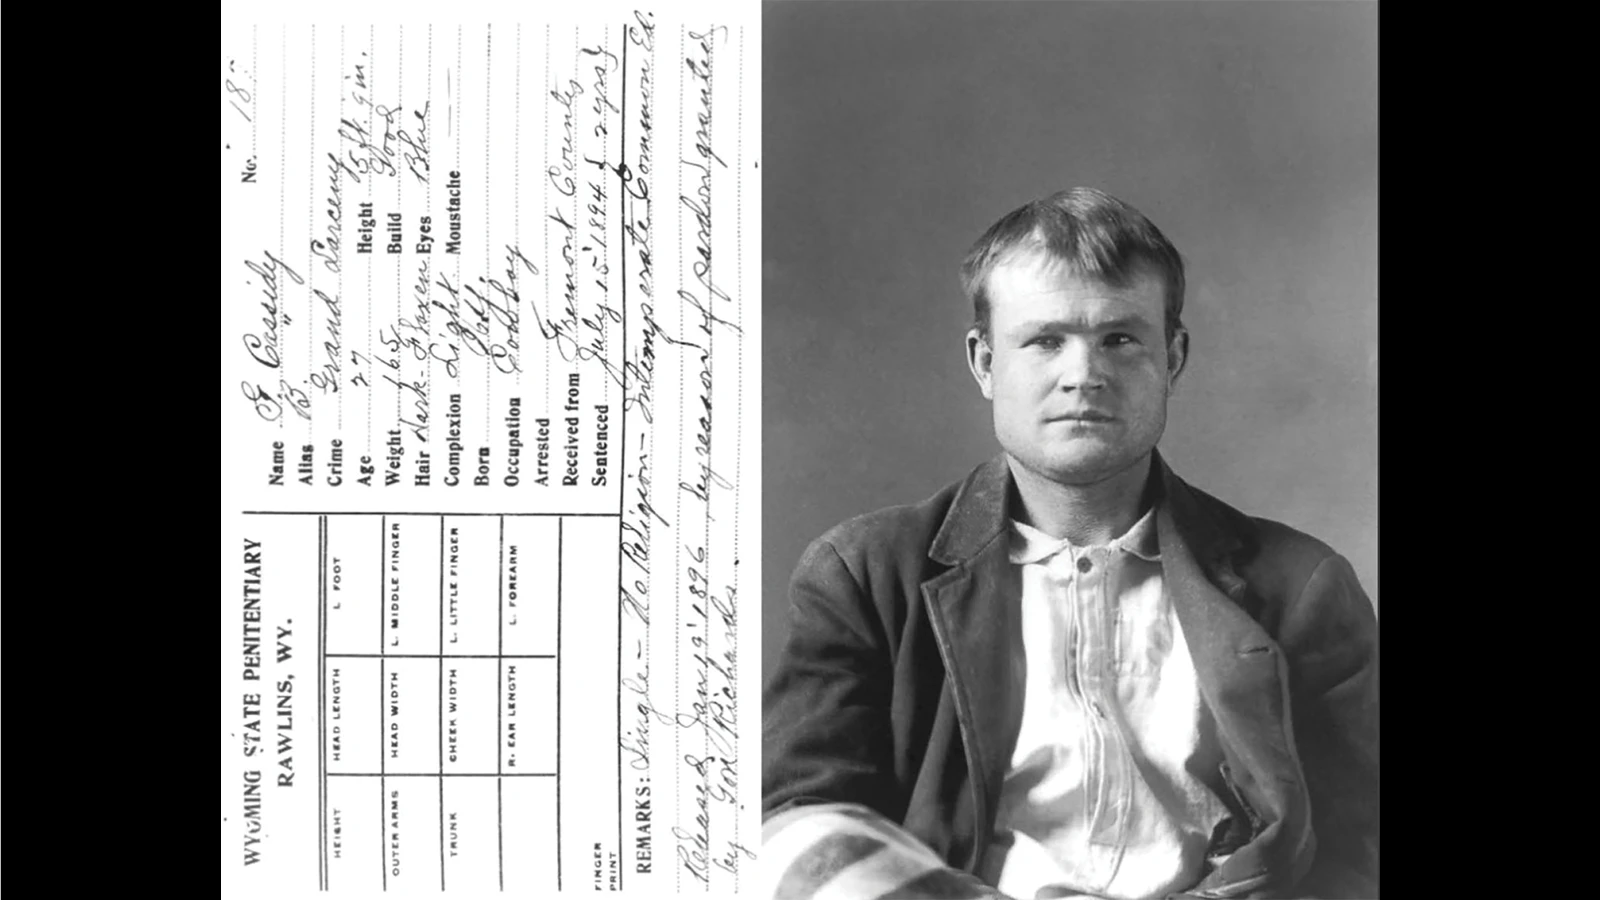 WYOMING STATE PENITENTIARY
RAWLINS, WY.
HEIGHT HEAD LENGTH L. FOOT
OUTER ARMS HEAD WIDTH L. MIDDLE FINGER
TRUNK CHEEK WIDTH L. LITTLE FINGER
R. EAR LENGTH L. FOREARM
FINGER
PRINT
No. 187
Name G Cassidy
Alias B. "
Crime Grand Larceny
Age 27 Height 5 ft. 9 in.
Weight 165 Build Good
Hair Dark-Flaxen Eyes Blue
Complexion Light Moustache
Born
Occupation Cowboy
Arrested
Received from Fremont County
Sentenced July 15' 1894 2 yrs
REMARKS: Single - No Religion - Intemperate Common Ed.
Released Jan 19' 1896, by reason of pardon granted
by Gov Richards.